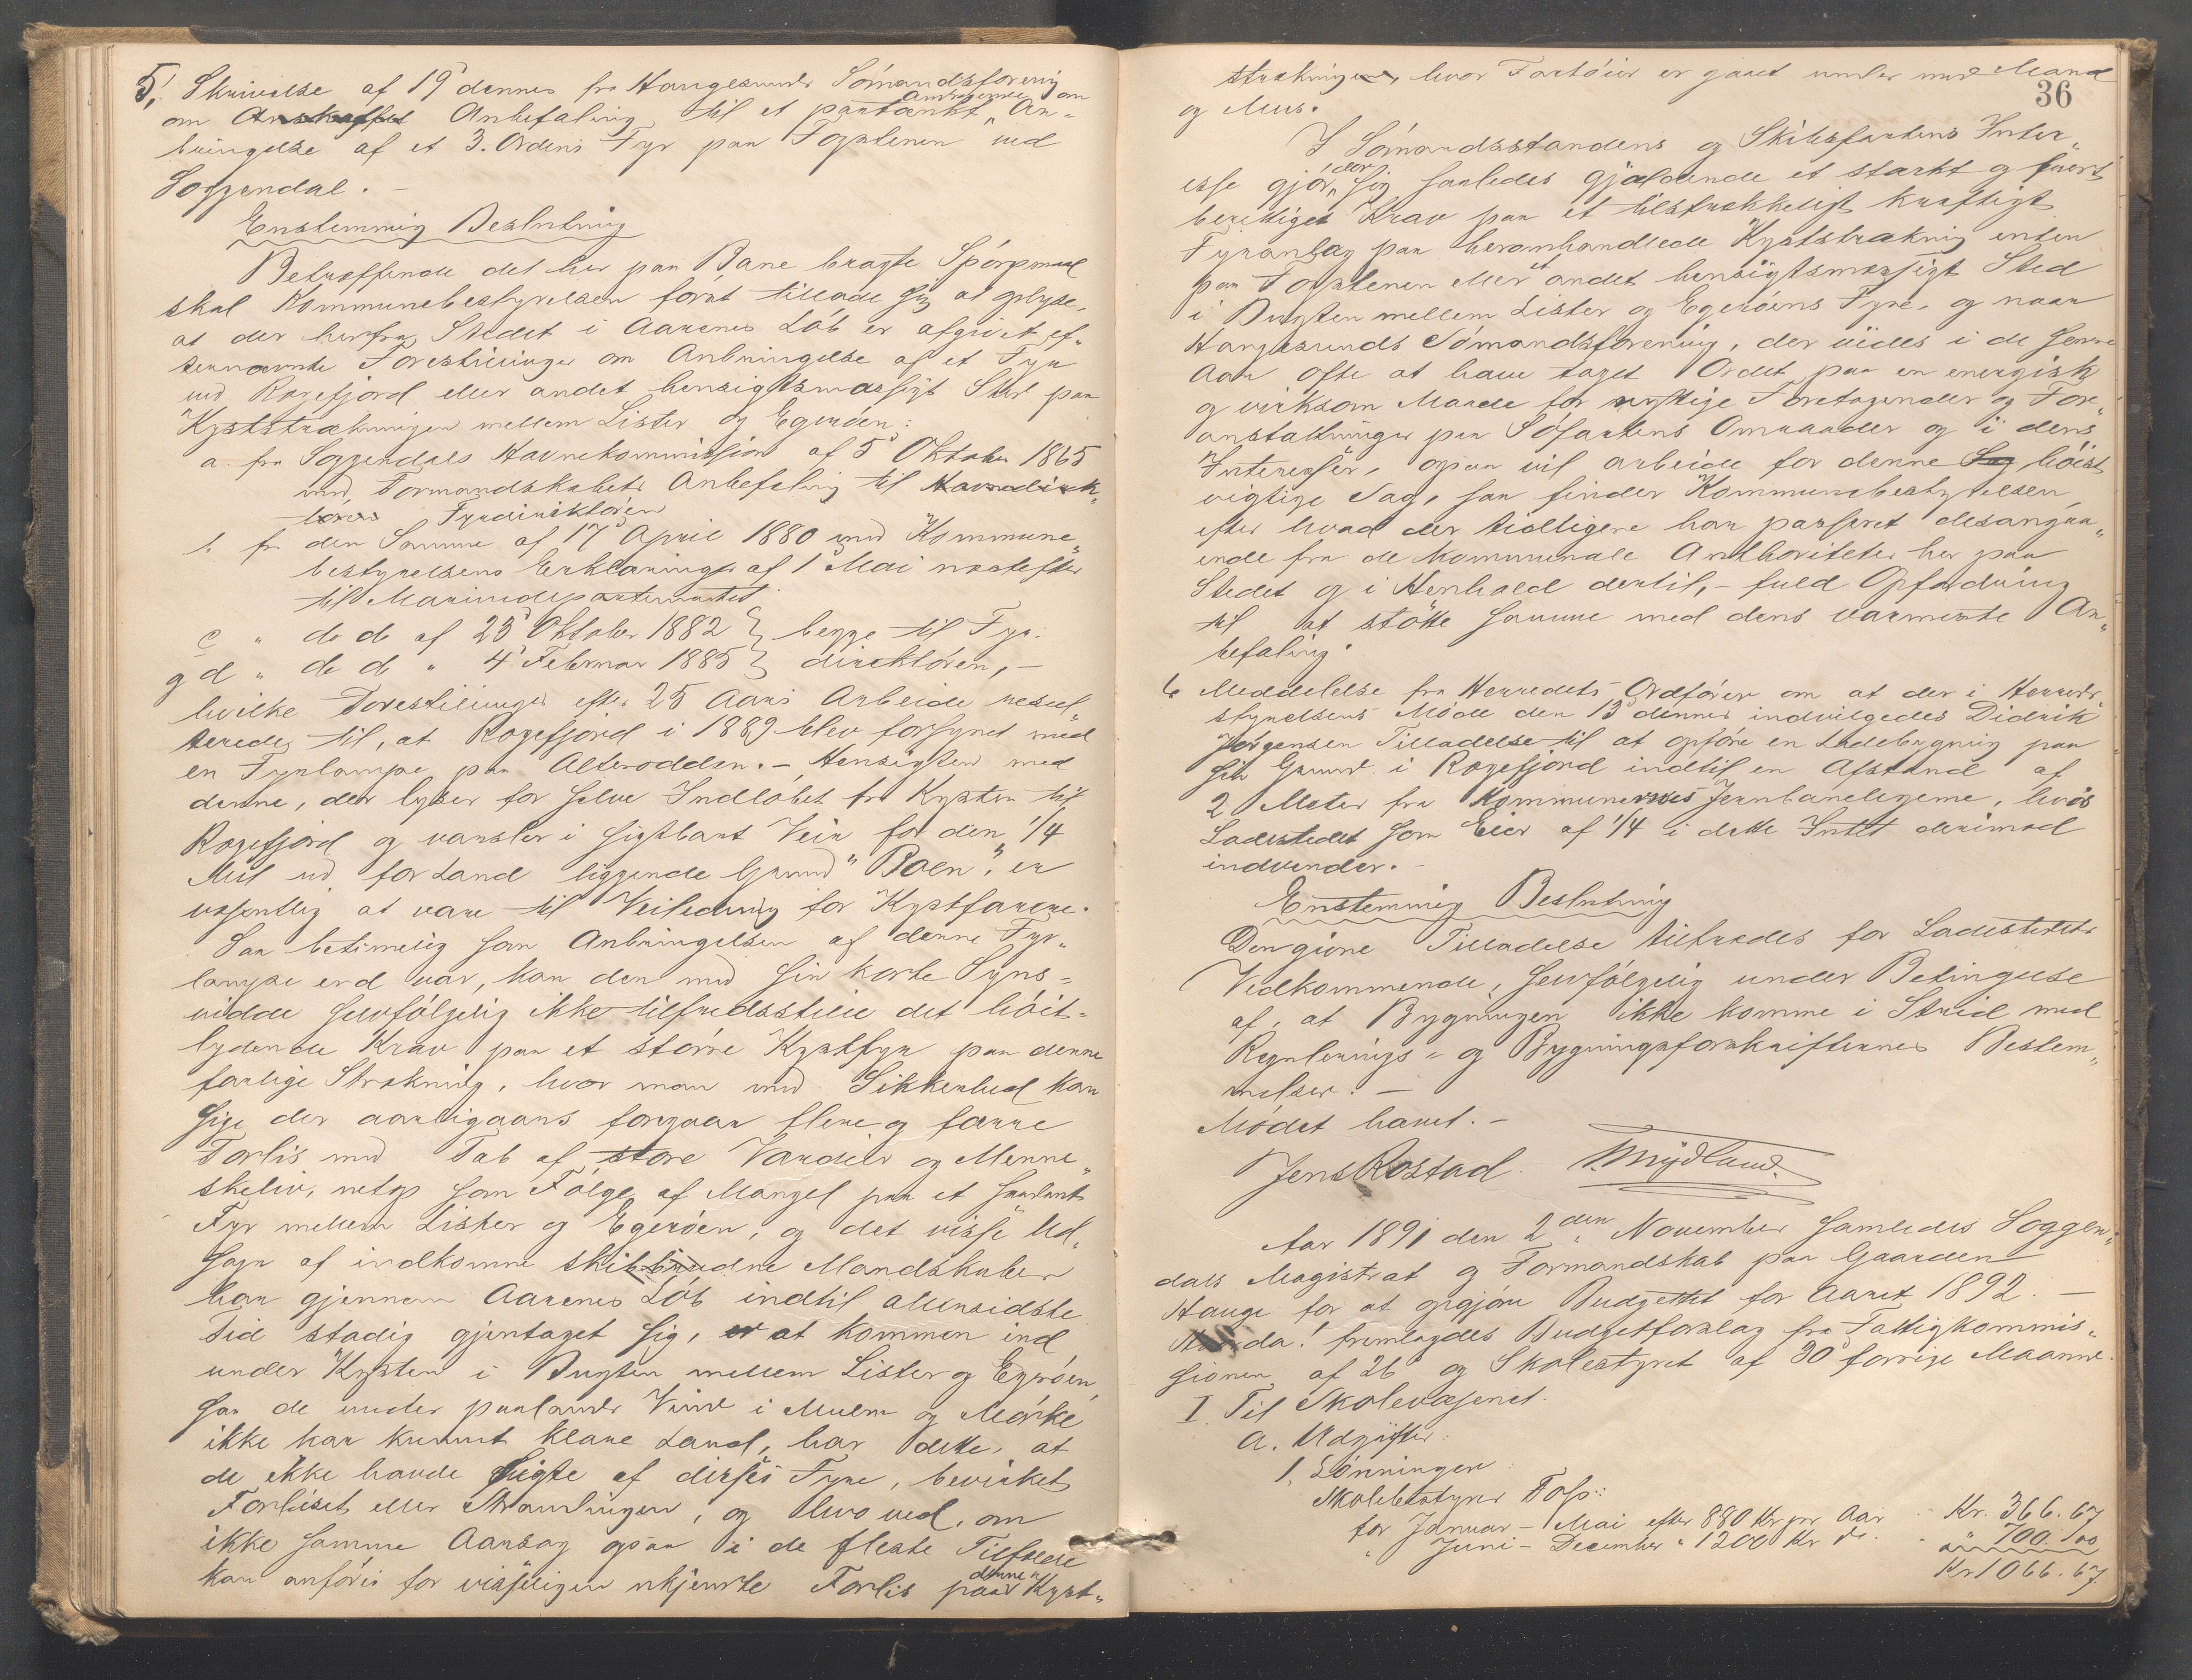 5, Skrivelse af 19' dennes fra Haugesunds Sømandsforening
om Anskaffel Anbefaling til et paatænkt Andragende om An-
bringelse af et 3. Ordens Fyr paa Fogstenen ved
Soggendal. -
Enstemmig Beslutning
Betræffende det her paa Bane bragte Spørgsmaal
skal Kommunebestyrelsen først tillade sig at oplyse,
at der herfra Stedet i Aarenes Løb er afgivet ef-
ternævnte Forestillinger om Anbringelse af et Fyr
ved Rægefjord eller andet hensigtsmæssigt Sted paa
Kyststrækningen mellem Lister og Egerøen:
a. fra Soggendals Havnekommission af 5' Oktober 1865
med Formandskabets Anbefaling til Havnedirek-
tøren Fyrdirektøren
b. fra den Samme af 17' April 1880 med Kommune-
bestyrelsens Erklæringer af 1' Mai næstefter
til Marinedepartementet
c " do do af 25' Oktober 1882 } begge til Fyr-
og d " do do " 4' Februar 1885 } direktøren, -
hvilke Forestillinger efter 25 Aars Arbeide resul-
terede til, at Rægefjord i 1889 blev forsynet med
en Fyrlampe paa Alterodden. - Hensigten med
denne, der lyser for selve Indløbet fra Kysten til
Rægefjord og varsler i sigtbart Veir for den 1/4
Mil ud for Land liggende Grund "Boen", er
væsentlig at være til Veiledning for Kystfarere.
Saa betimelig som Anbringelsen af denne Fyr-
lampe end var, kan den med sin korte Syns-
vidde selvfølgelig ikke tilfredsstille det høit-
lydende Krav paa et større Kystfyr paa denne
farlige Strækning, hvor man med Sikkerhed kan
sige der aarligaars foregaar flere og færre
Forlis med Tab af store Værdier og Menne-
skeliv, netop som Følge af Mangel paa et saadant
Fyr mellem Lister og Egerøen, og det visse Ud-
sagn af indkomne skibbrudne Mandskaber
har gjennem Aarenes Løb indtil allersidste
Tid stadig gjentaget sig, er at kommen ind
under Kysten i Bugten mellem Lister og Egerøen,
saa de under paalands Vind i Mulm og Mørke
ikke har kunnet klare Land, har dette, at
de ikke havde Sigte af disses Fyre, bevirket
Forliset eller Strandingen, og hvo ved, om
ikke samme Aarsag ogsaa i de fleste Tilfælde
kan anføres for visseligen ukjendte Forlis paa denne Kyst-
36
strækningen, hvor Fartøier er gaaet under med Mand
og Mus.
I Sømandsstandens og Skibsfartens Inter-
esse gjør der sig saaledes gjældende et stærkt og svært
berettiget Krav paa et tilstrækkeligt kraftigt
Fyranlæg paa heromhandlede Kyststrækning enten
paa Fogstenen eller et andet hensigtsmæssigt Sted
i Bugten mellem Lister og Egerøens Fyre, og naar
Haugesunds Sømandsforening, der vides i de senere
Aar ofte at have taget Ordet paa en energisk
og virksom Maade for nyttige Foretagender og For-
anstaltninger paa Søfartens Omraader og i dens
Interesser, ogsaa vil arbeide for denne Sag høist
vigtige Sag, saa finder Kommunebestyrelsen,
efter hvad der tidligere har passeret desangaa-
ende fra de kommunale Authoriteter her paa
Stedet og i Henhold dertil, - fuld Opfordring
til at støtte samme med dens varmeste An-
befaling.
6 Meddelelse fra Herredets Ordfører om at der i Herreds-
styrelsens Møde den 13' dennes indvilgedes Didrik
Jørgensen Tilladelse til at opføre en Ladebygning paa
sin Grund i Rægefjord indtil en Afstand af
2 Meter fra Kommunernes Jernbaneligeme, hvis
Ladestedet som Eier af 1/4 i dette Intet derimod
indvender. -
Enstemmig Beslutning
Den givne Tilladelse tiltrædes for Ladestedets
Vedkommende, selvfølgelig under Betingelse
af, at Bygningen ikke komme i Strid med
Regulerings- og Bygningsforskrifternes Bestem-
melser. -
Mødet hævet. -
Jens Rostad. Mydland.
Aar 1891 den 2den November samledes Soggen-
dals Magistrat og Formandskab paa Gaarden
Hauge for at opgjøre Budgettet for Aaret 1892. -
da! fremlagdes Budgetforslag fra Fattigkommis-
sionen af 26' og Skolestyret af 30' forrige Maaned.
I. Til Skolevæsenet.
a. Udgifter:
1, Lønninger
Skolebestyrer Foss:
for Januar - Mai efter 880 Kr pr Aar Kr. 366.67
" Juni - December " 1200 Kr do. " 700.00
Kr 1066.67.